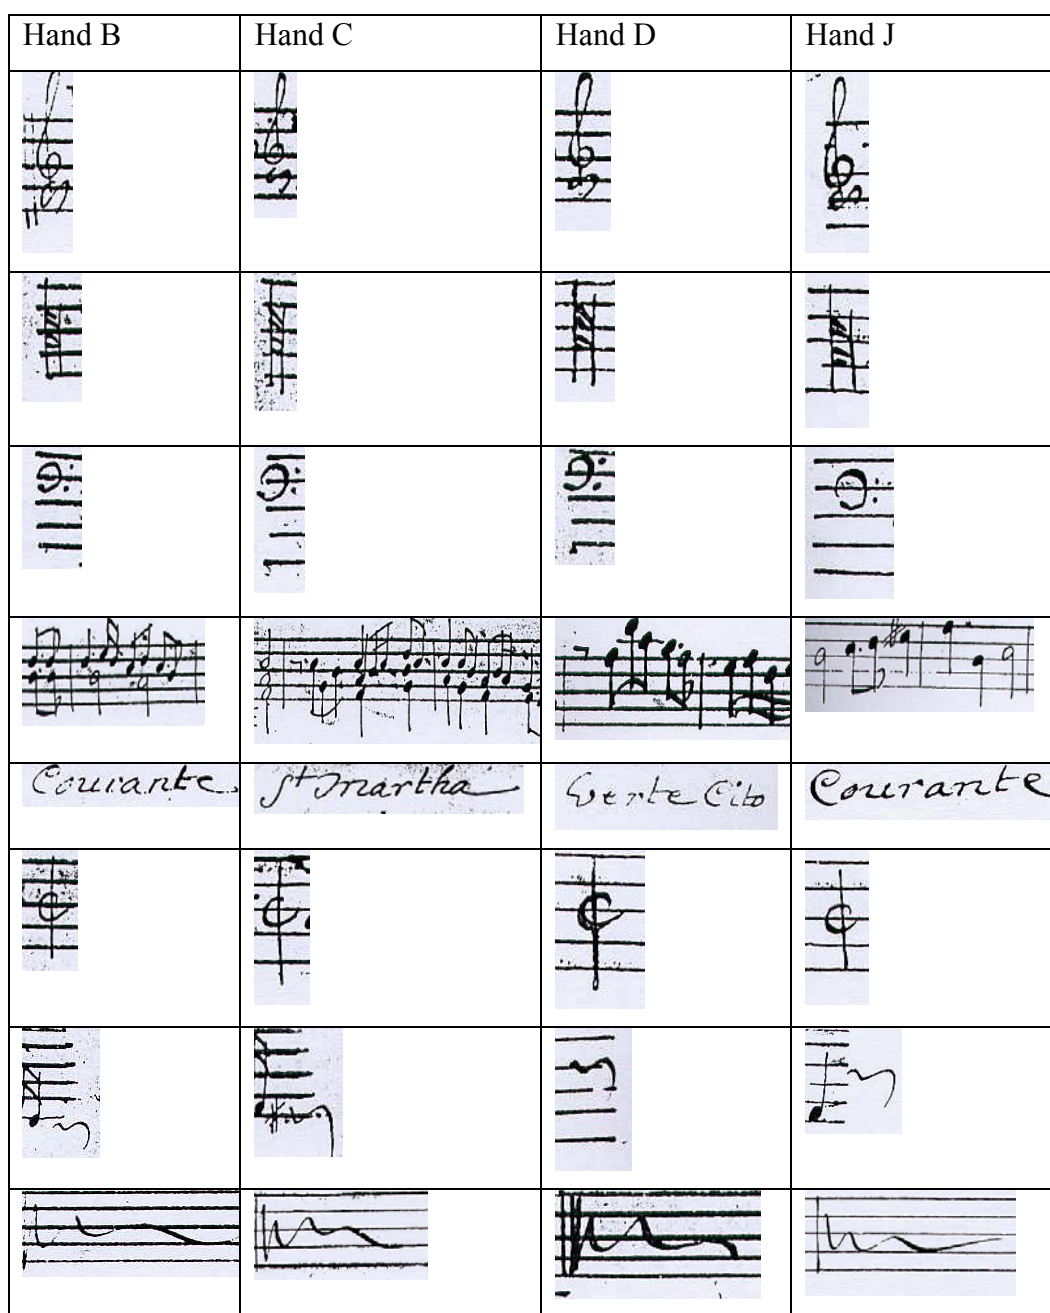 Hand B Hand C Hand D Hand J
Courante St Martha Verte Cito Courante